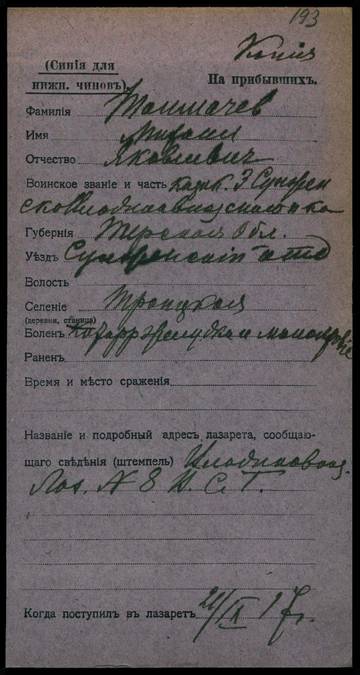 193
Копія
(Синія для
нижн. чиновъ)
На прибывшихъ.
Фамилія Толмачев
Имя Михаил
Отчество Яковлевич
Воинское званіе и часть казак. 3 Сунжен
ско Владикавказскаго
Губернія Терская Обл.
Уѣздъ Сунженскій отд
Волость
Селеніе Троицкая
(деревня, станица)
Боленъ Катарр желудка и малокровіе
Раненъ
Время и мѣсто сраженія
Названіе и подробный адресъ лазарета, сообщаю-
щаго свѣдѣнія (штемпель) Владикавказ.
Лаз. № 8 В. С. Г.
Когда поступилъ въ лазаретъ 21/IX 17 г.